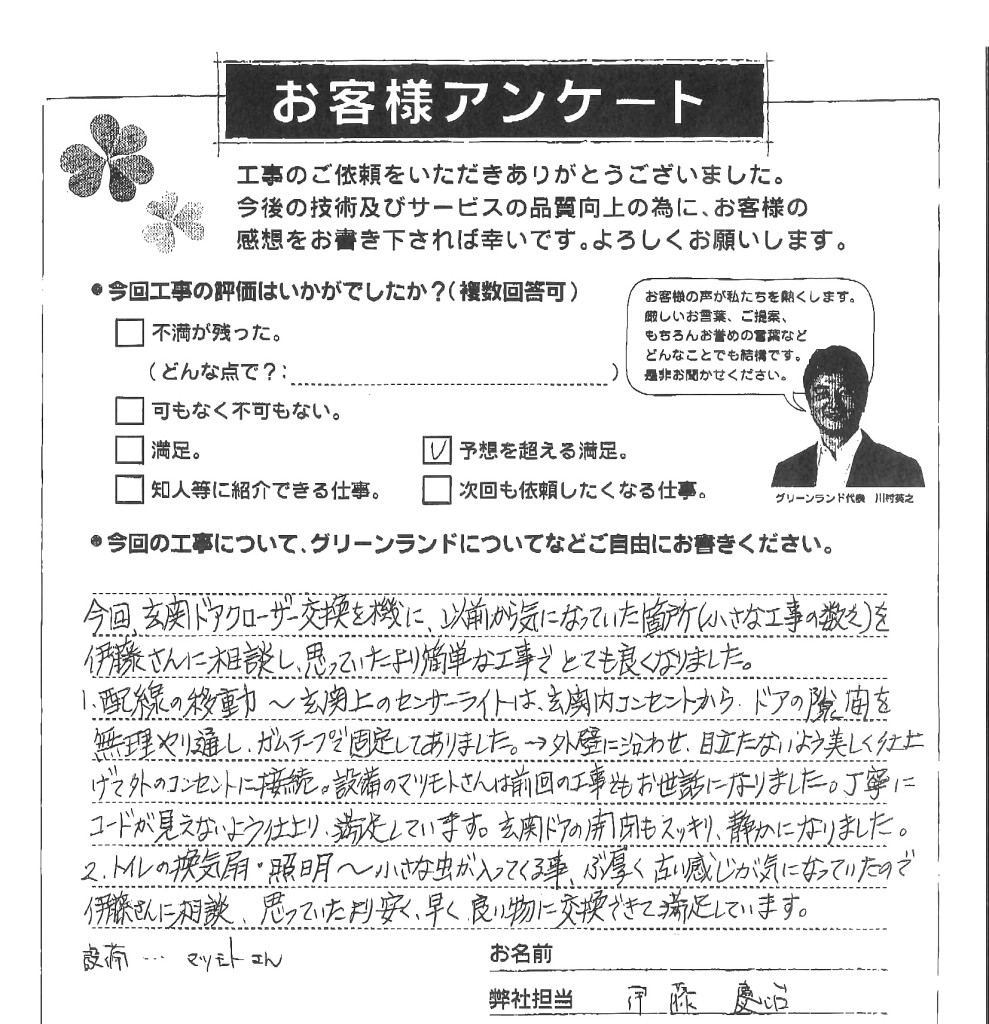 お客様アンケート
工事のご依頼をいただきありがとうございました。
今後の技術及びサービスの品質向上の為に、お客様の
感想をお書き下されば幸いです。よろしくお願いします。
●今回工事の評価はいかがでしたか?(複数回答可)
不満が残った。
(どんな点で?: )
可もなく不可もない。
満足。
予想を超える満足。
知人等に紹介できる仕事。
次回も依頼したくなる仕事。
お客様の声が私たちを熱くします。
厳しいお言葉、ご提案、
もちろんお誉めの言葉など
どんなことでも結構です。
是非お聞かせください。
グリーンランド代表 川村英之
●今回の工事について、グリーンランドについてなどご自由にお書きください。
今回、玄関ドアクローザー交換を機に、以前から気になっていた箇所(小さな工事の数々)を
伊藤さんに相談し、思っていたより簡単な工事でとても良くなりました。
1.配線の移動〜玄関上のセンサーライトは、玄関内コンセントから、ドアの隙間を
無理やり通し、ガムテープで固定してありました。→外壁に沿わせ、目立たないよう美しく仕上
げて外のコンセントに接続。設備のマツモトさんは前回の工事でもお世話になりました。丁寧に
コードが見えないよう仕上り、満足しています。玄関ドアの開閉もスッキリ、静かになりました。
2.トイレの換気扇・照明〜小さな虫が入ってくる事、ぶ厚く古い感じが気になっていたので
伊藤さんに相談、思っていたより安く、早く良い物に交換できて満足しています。
設備…マツモトさん
お名前
弊社担当 伊藤 慶治